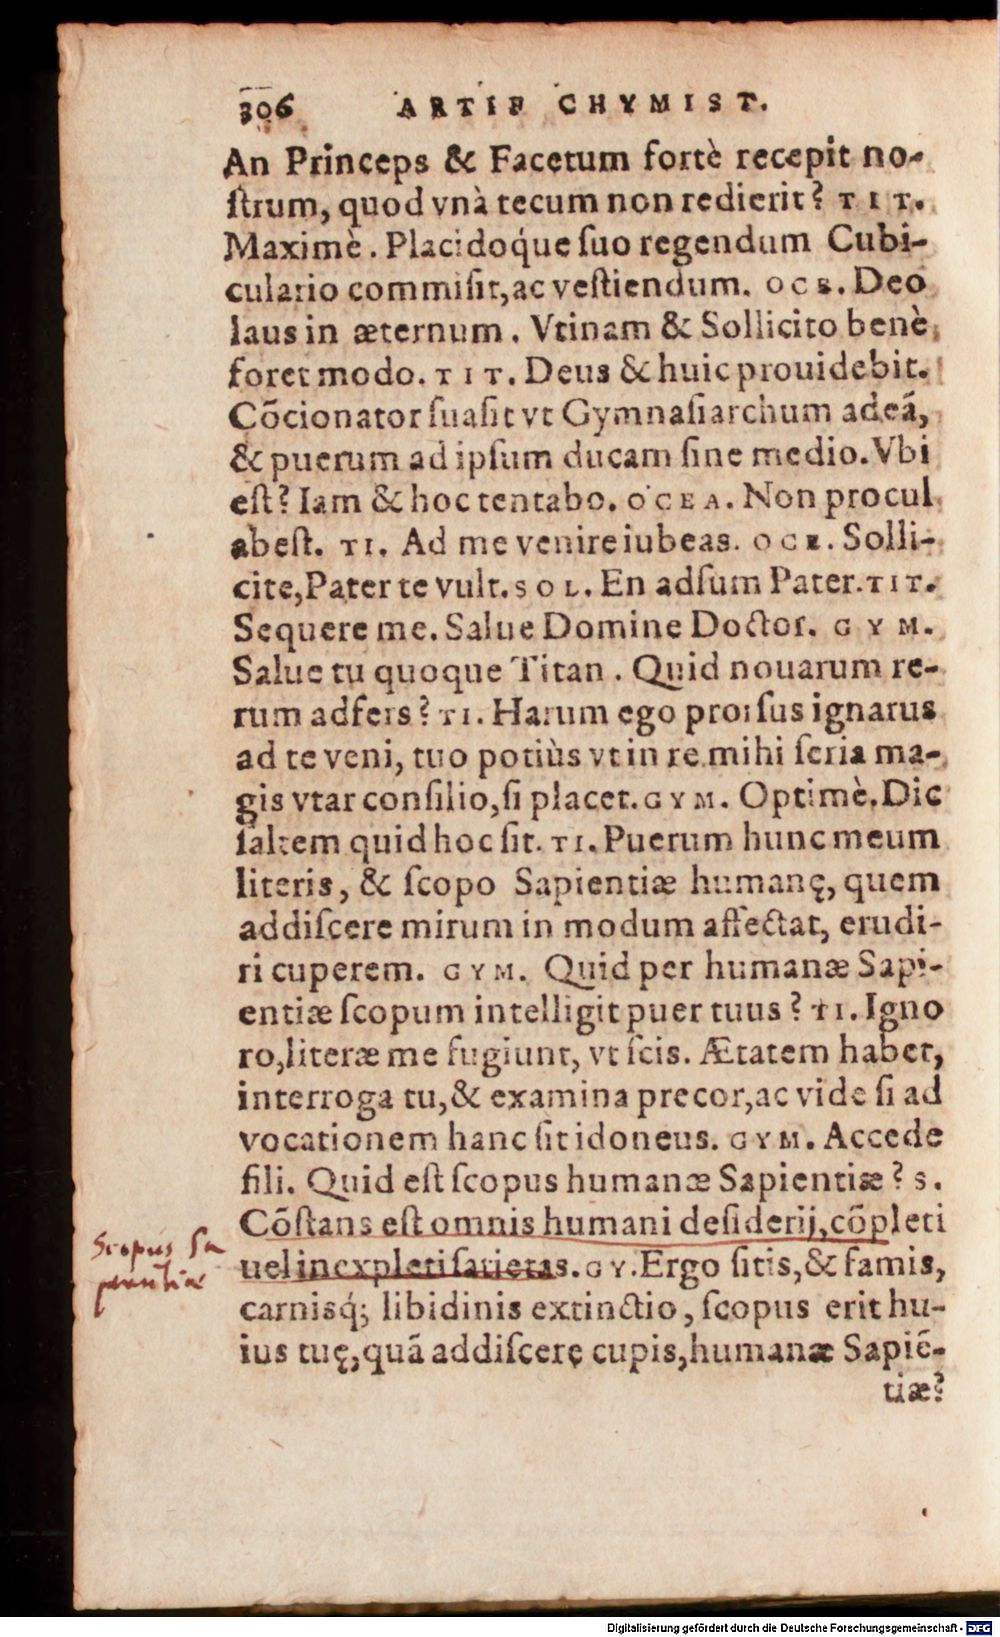 306 ARTIF CHYMIST.
An Princeps & Facetum fortè recepit no-
ſtrum, quod vnà tecum non redierit? TIT.
Maximè. Placidoq́ue ſuo regendum Cubi-
culario commiſit, ac veſtiendum. OCE. Deo
laus in æternum. Vtinam & Sollicito benè
foret modo. TIT. Deus & huic prouidebit.
Cõcionator ſuaſit vt Gymnaſiarchum adeã,
& puerum ad ipſum ducam ſine medio. Vbi
eſt? Iam & hoc tentabo. OCEA. Non procul
abeſt. TI. Ad me venire iubeas. OCE. Solli-
cite, Pater te vult. SOL. En adſum Pater. TIT.
Sequere me. Salue Domine Doctor. GYM.
Salue tu quoque Titan. Quid nouarum re-
rum adfers? TI. Harum ego prorſus ignarus
ad te veni, tuo potiùs vt in re mihi ſeria ma-
gis vtar conſilio, ſi placet. GYM. Optimè. Dic
ſaltem quid hoc ſit. TI. Puerum hunc meum
literis, & ſcopo Sapientiæ humanę, quem
addiſcere mirum in modum affectat, erudi-
ri cuperem. GYM. Quid per humanæ Sapi-
entiæ ſcopum intelligit puer tuus? TI. Igno
ro, literæ me fugiunt, vt ſcis. Ætatem habet,
interroga tu, & examina precor, ac vide ſi ad
vocationem hanc ſit idoneus. GYM. Accede
fili. Quid eſt ſcopus humanæ Sapientiæ? S.
Cõſtans eſt omnis humani deſiderij, cõpleti
uel inexpleti ſatietas. GY. Ergo ſitis, & famis,
carnisq́; libidinis extinctio, ſcopus erit hu-
ius tuę, quã addiſcere cupis, humanæ Sapiẽ-
tiæ?
Scopus Sa
pientiæ
Digitalisierung gefördert durch die Deutsche Forschungsgemeinschaft - DFG